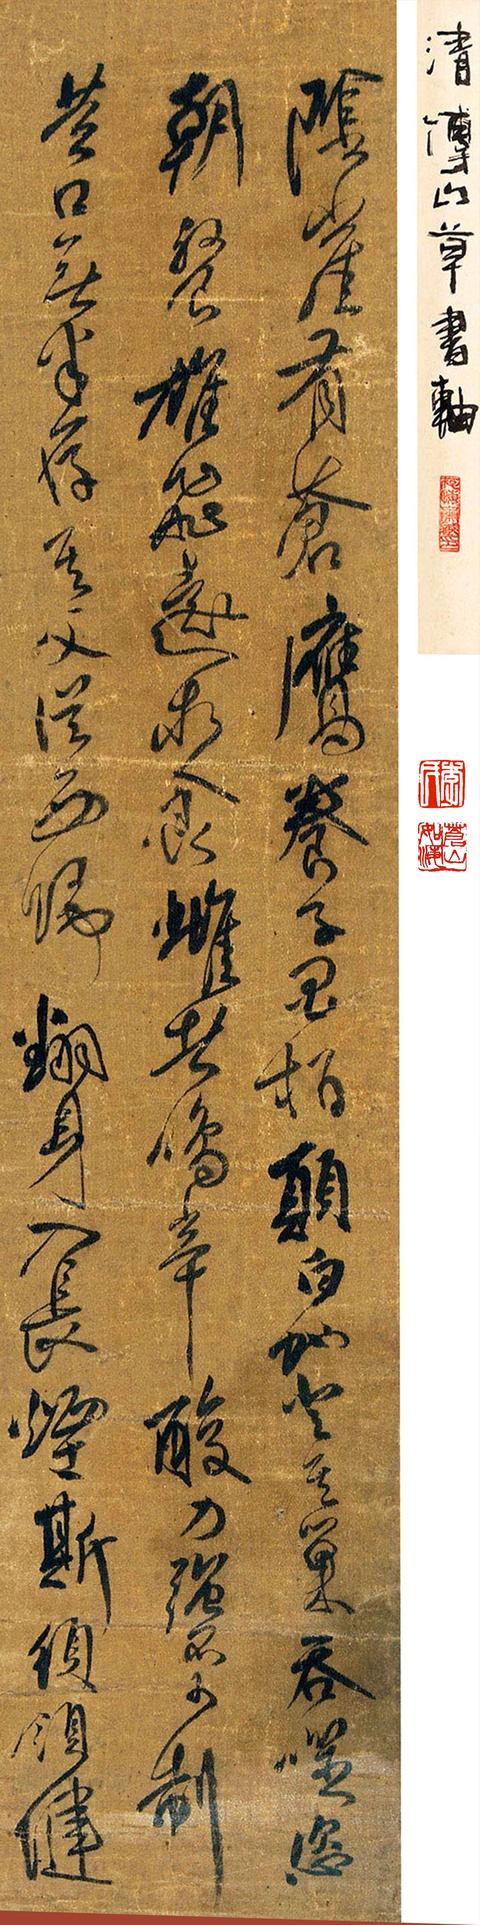 清傅山草書軸
蒼山如海
陰崖有蒼鷹養子黑柏顛白蛇登其巢吞噬恣
朝餐雄飛遠求食雌者鳴辛酸力強不可制
黃口無半存其父從西歸翻身入長煙斯須領健